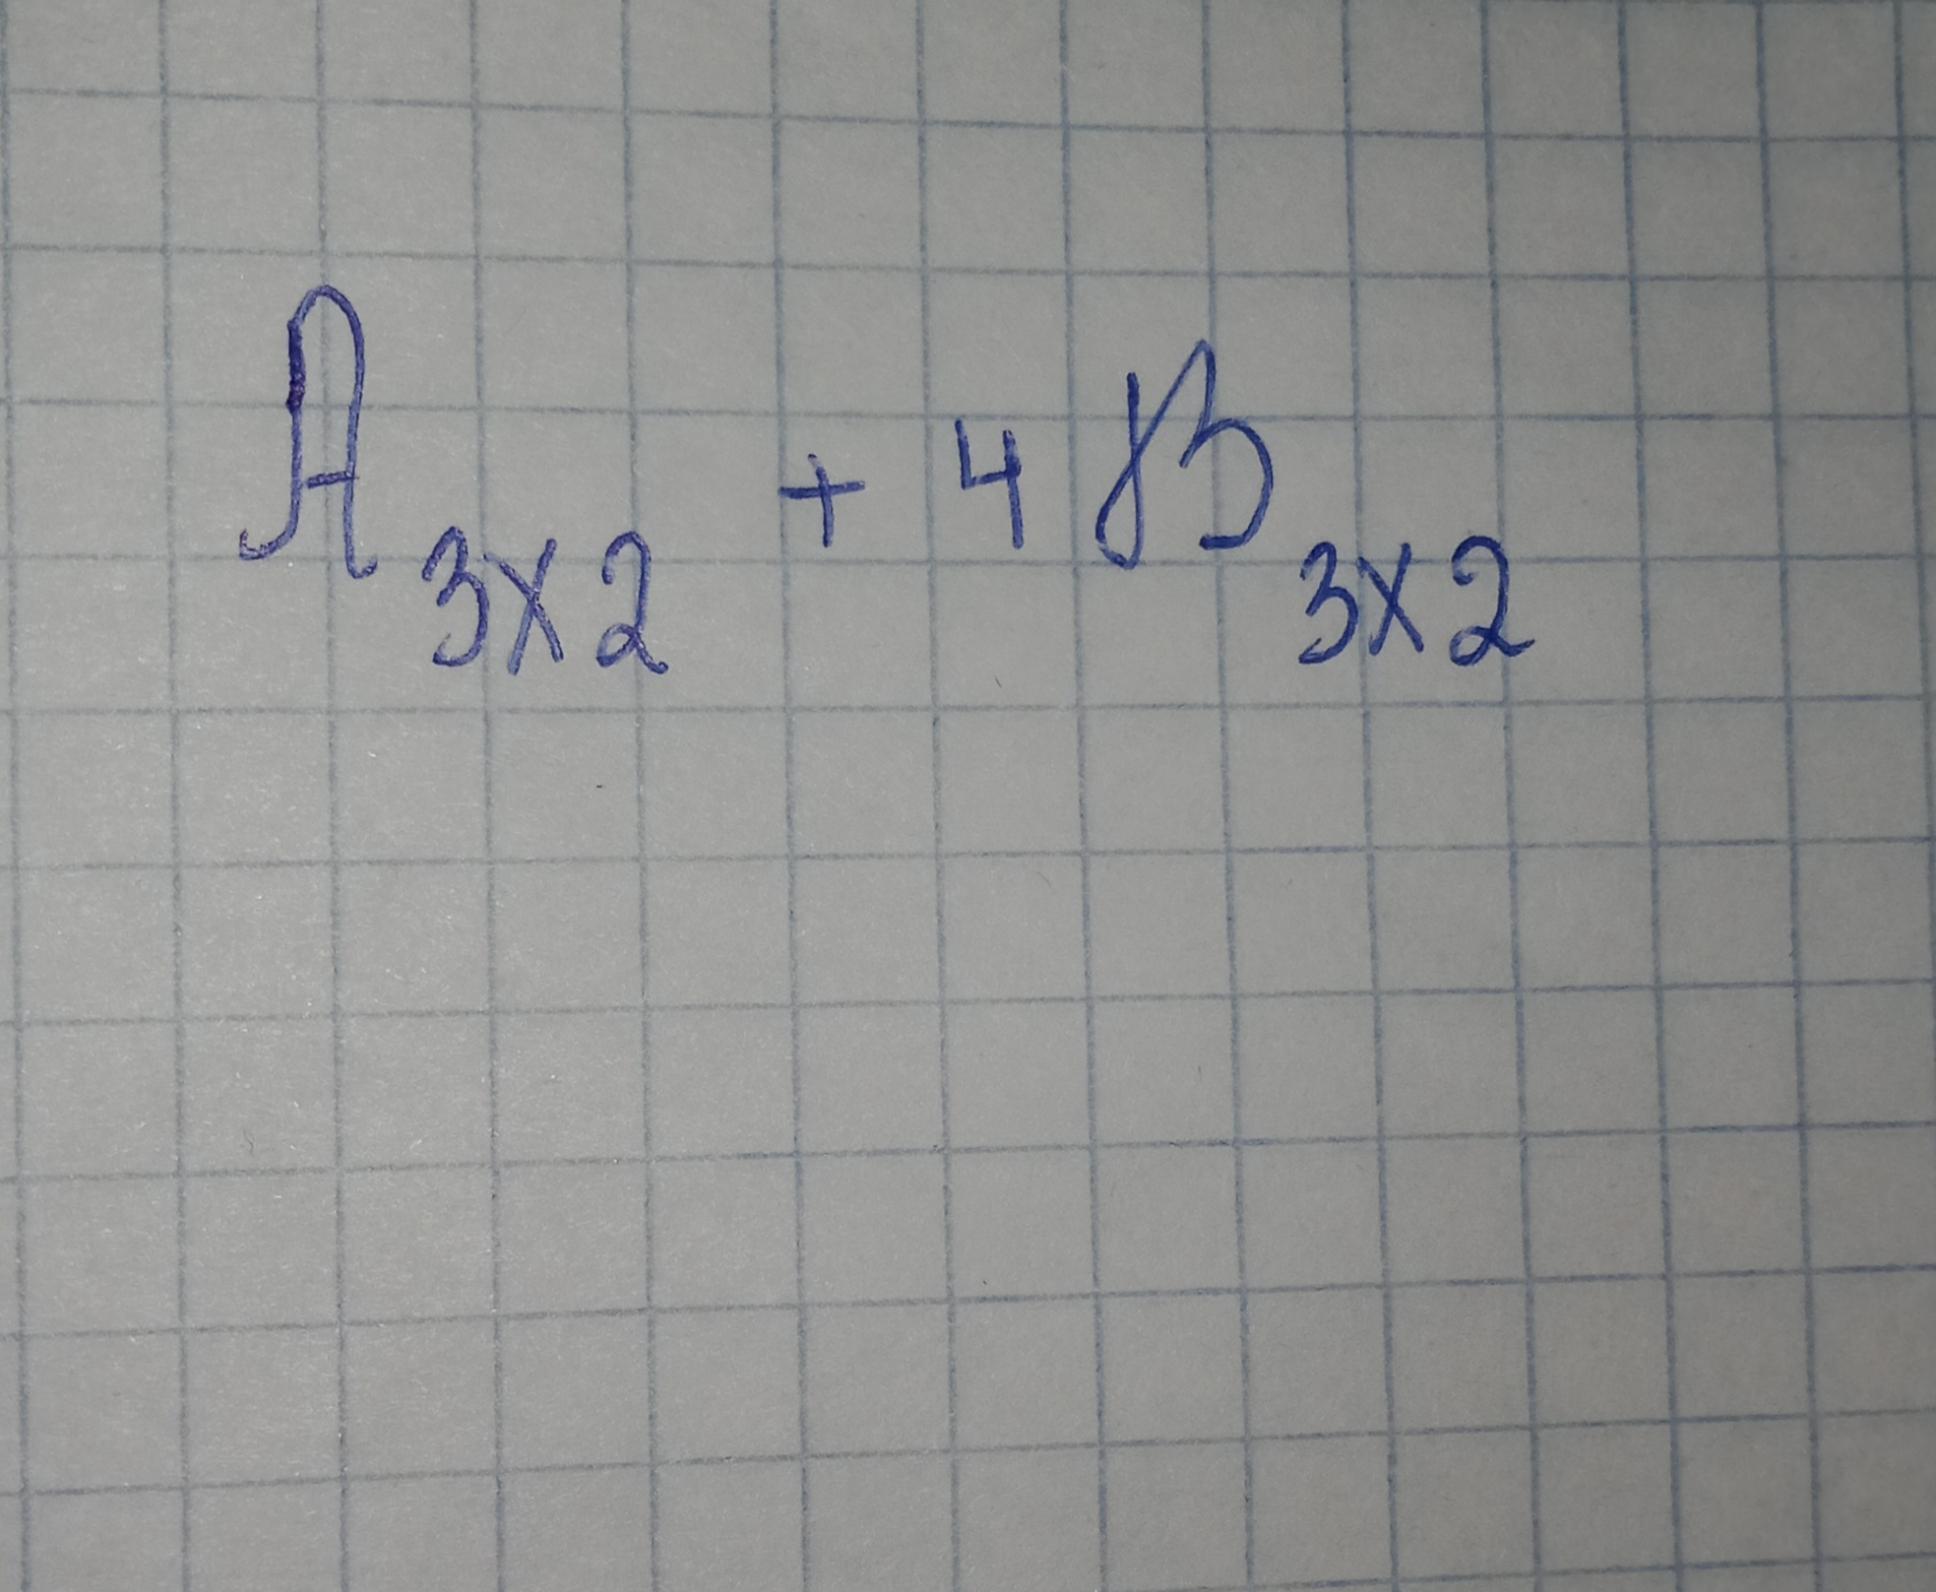 A₃ₓ₂ + 4 B₃ₓ₂